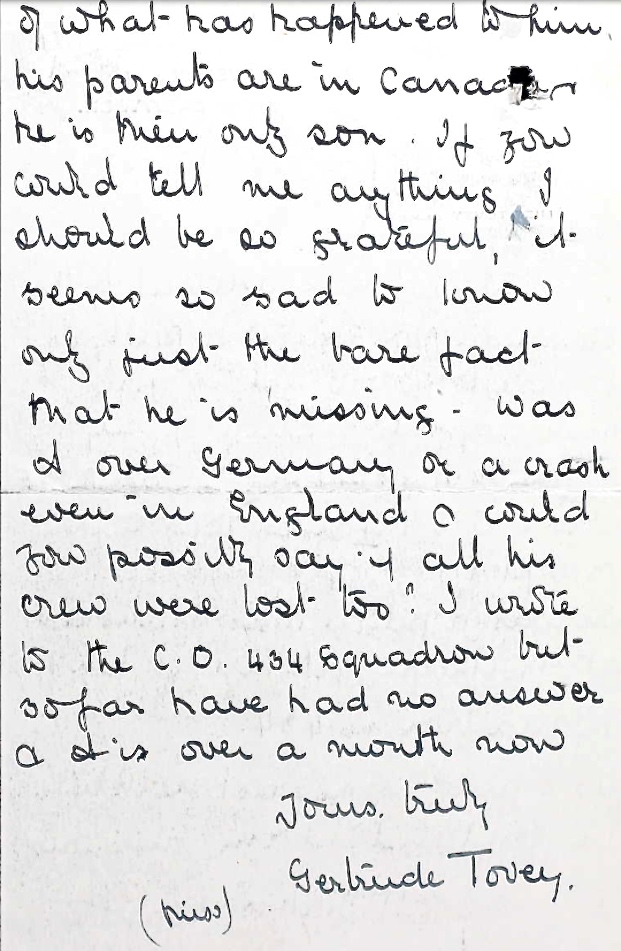 of what has happened to him,
his parents are in Canada &
he is their only son. If you
could tell me anything I
should be so grateful, it
seems so sad to know
only just the bare fact
that he is missing - was
it over Germany or a crash
even in England & could
you possibly say if all his
crew were lost too? I wrote
to the C.O. 434 Squadron but
so far have had no answer
& it is over a month now
Yours truly
Gertrude Tovey.
(Miss)